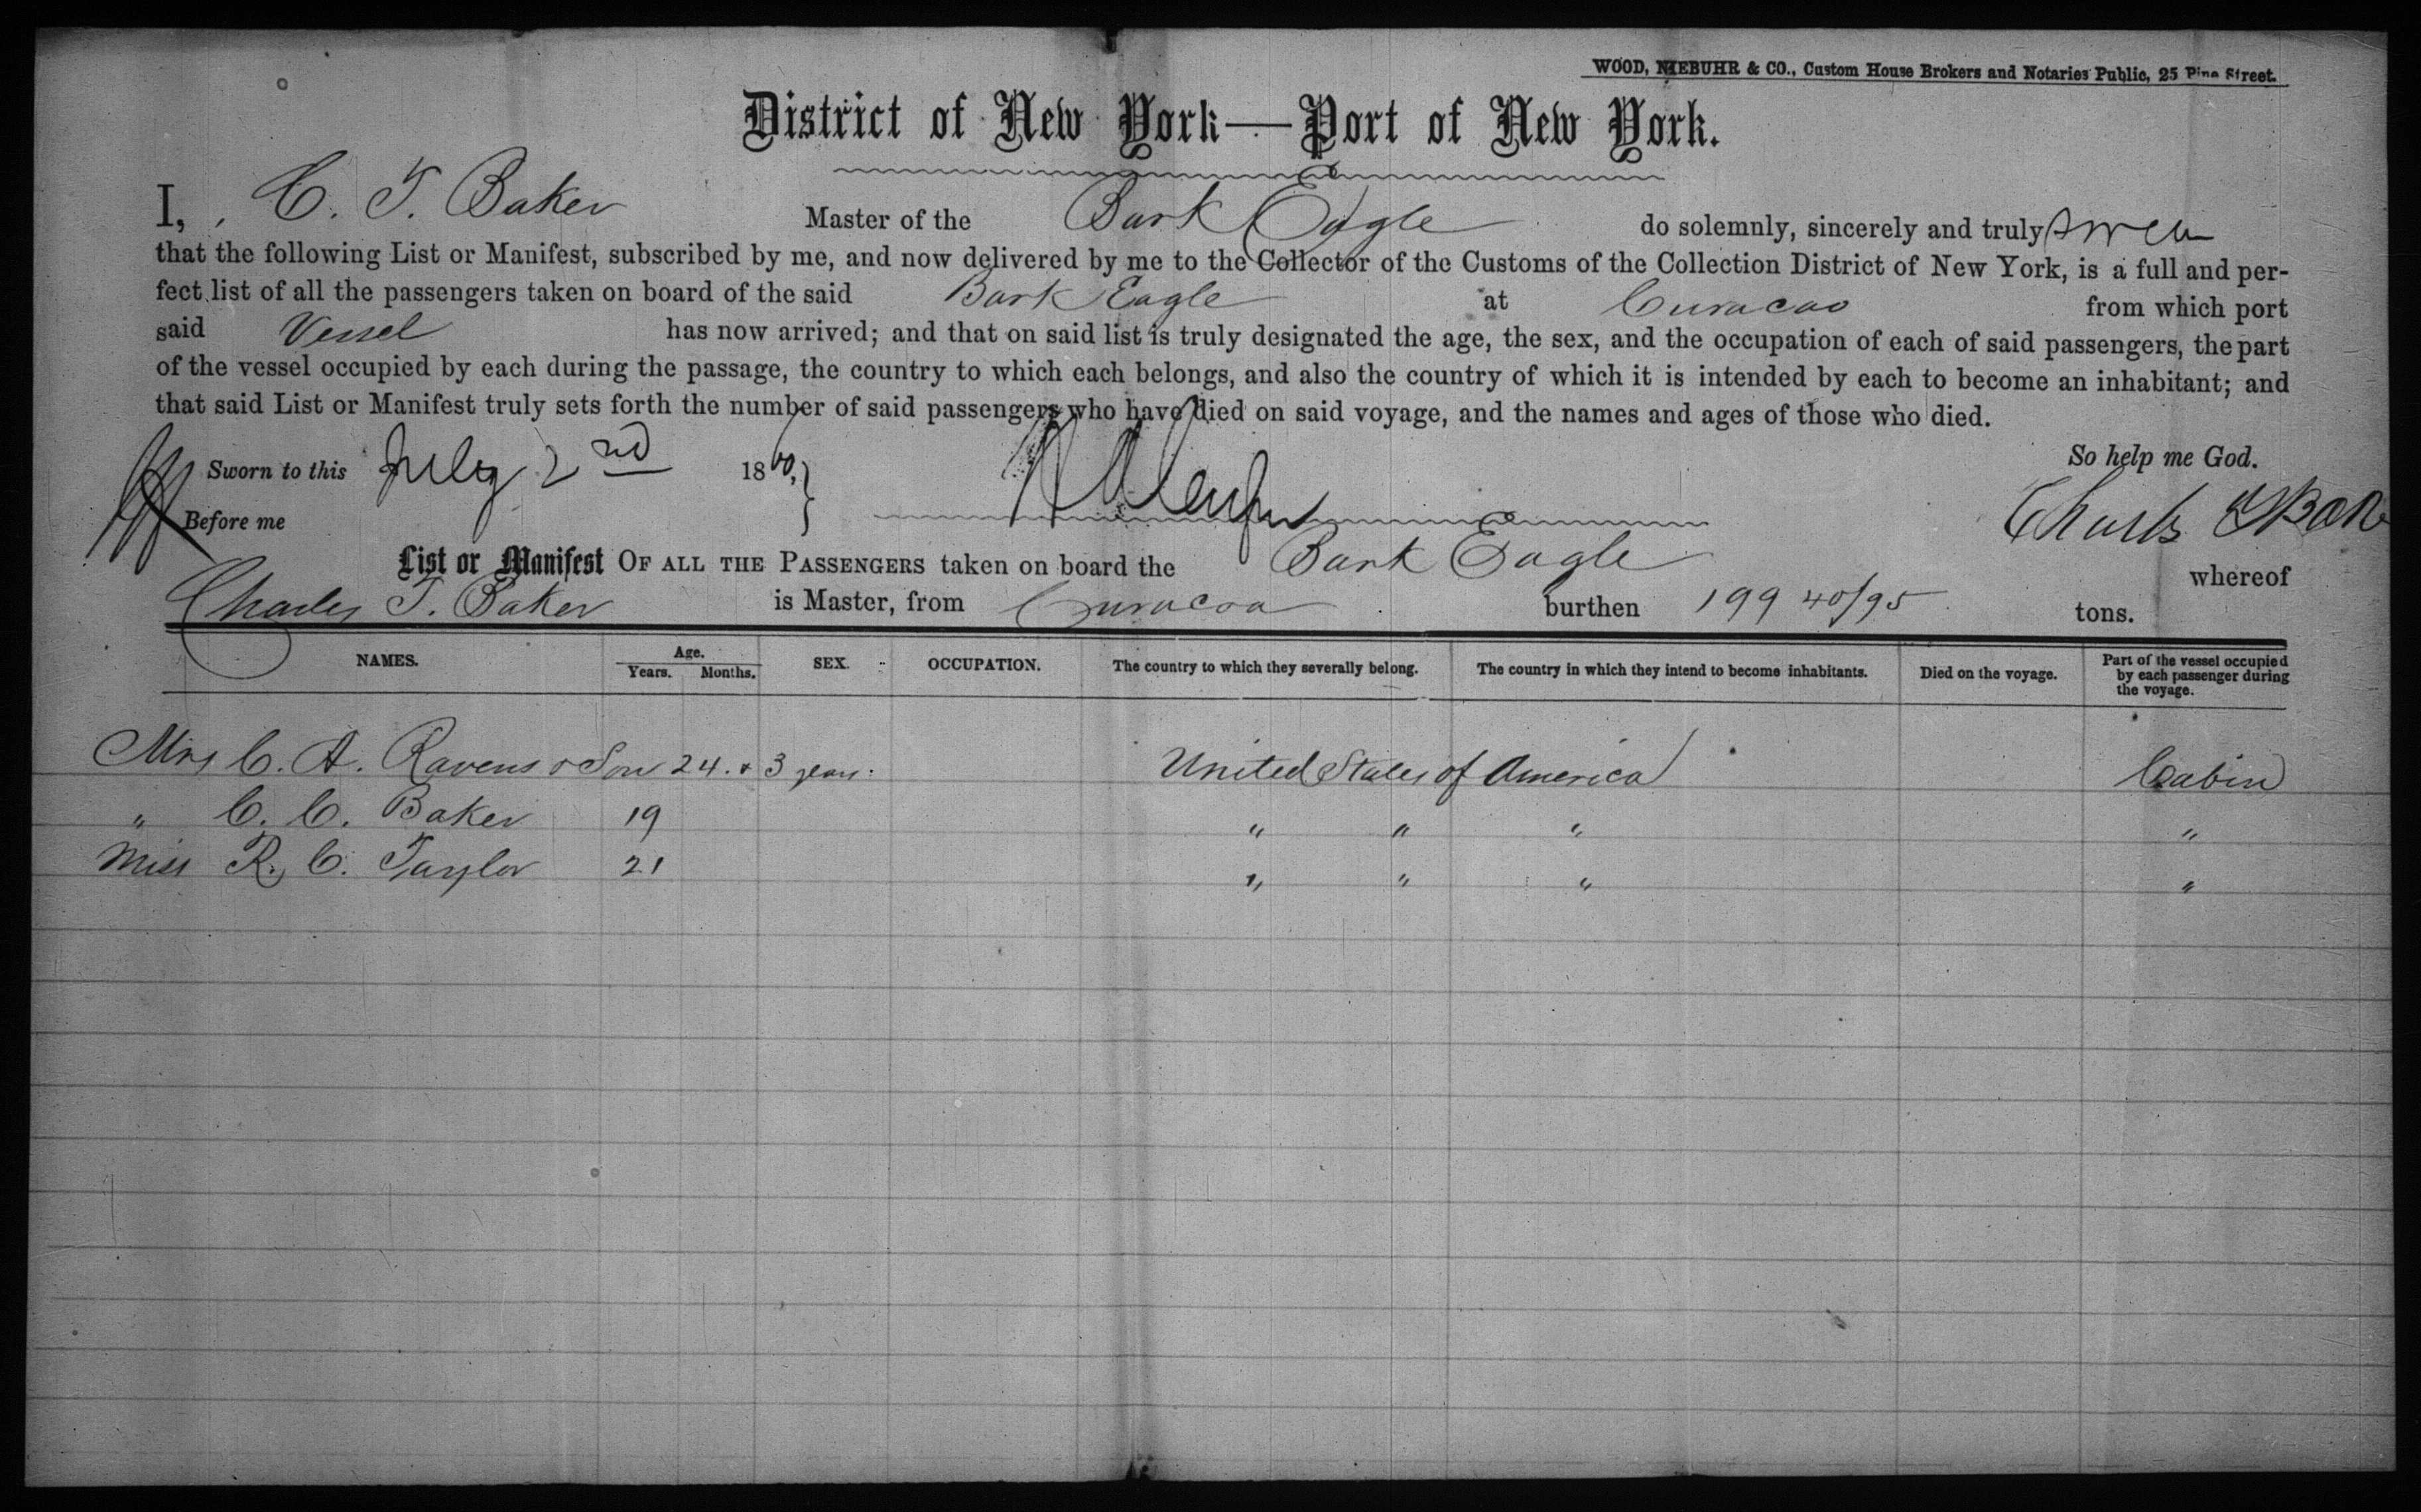 WOOD, NIEBUHR & CO., Custom House Brokers and Notaries Public, 25 Pine Street.
District of New York—Port of New York.
I, C. T. Baker Master of the Bark Eagle do solemnly, sincerely and truly swear
that the following List or Manifest, subscribed by me, and now delivered by me to the Collector of the Customs of the Collection District of New York, is a full and per-
fect list of all the passengers taken on board of the said Bark Eagle at Curacao from which port
said Vessel has now arrived; and that on said list is truly designated the age, the sex, and the occupation of each of said passengers, the part
of the vessel occupied by each during the passage, the country to which each belongs, and also the country of which it is intended by each to become an inhabitant; and
that said List or Manifest truly sets forth the number of said passengers who have died on said voyage, and the names and ages of those who died.
Sworn to this July 2nd 1860, So help me God.
Before me Charles T Baker
List or Manifest OF ALL THE PASSENGERS taken on board the Bark Eagle whereof
Charles T. Baker is Master, from Curacoa burthen 199 40/95 tons.
NAMES. Age. Years. Months. SEX. OCCUPATION. The country to which they severally belong. The country in which they intend to become inhabitants. Died on the voyage. Part of the vessel occupied by each passenger during the voyage.
Mrs C. A. Ravens & Son 24. & 3 years. United States of America Cabin
" C. C. Baker 19 " " " "
Miss R. C. Taylor 21 " " " "